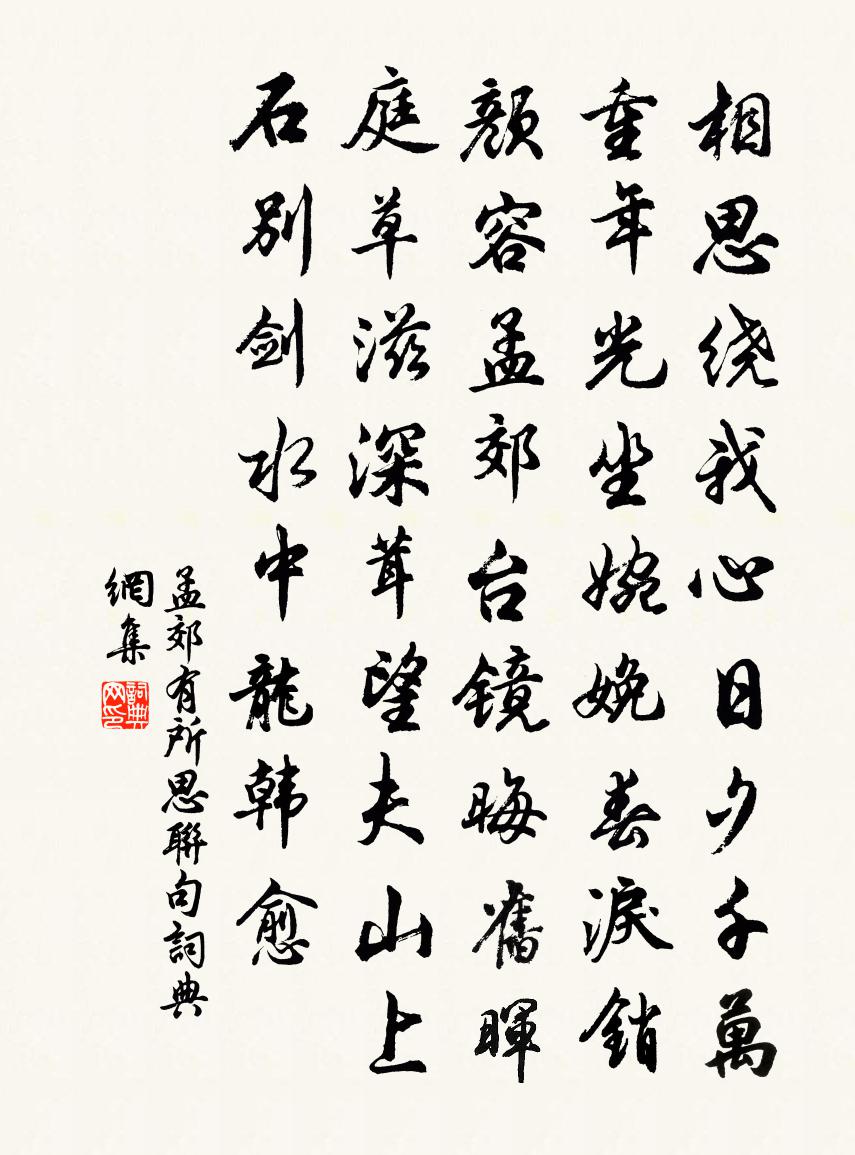 相思绕我心日夕千萬
重年光坐婉娩春淚銷
顏容孟郊台镜晦舊暉
庭草滋深茸望夫山上
石别剑水中龍韩愈
孟郊有所思聯句詞典
網集
詞典网印